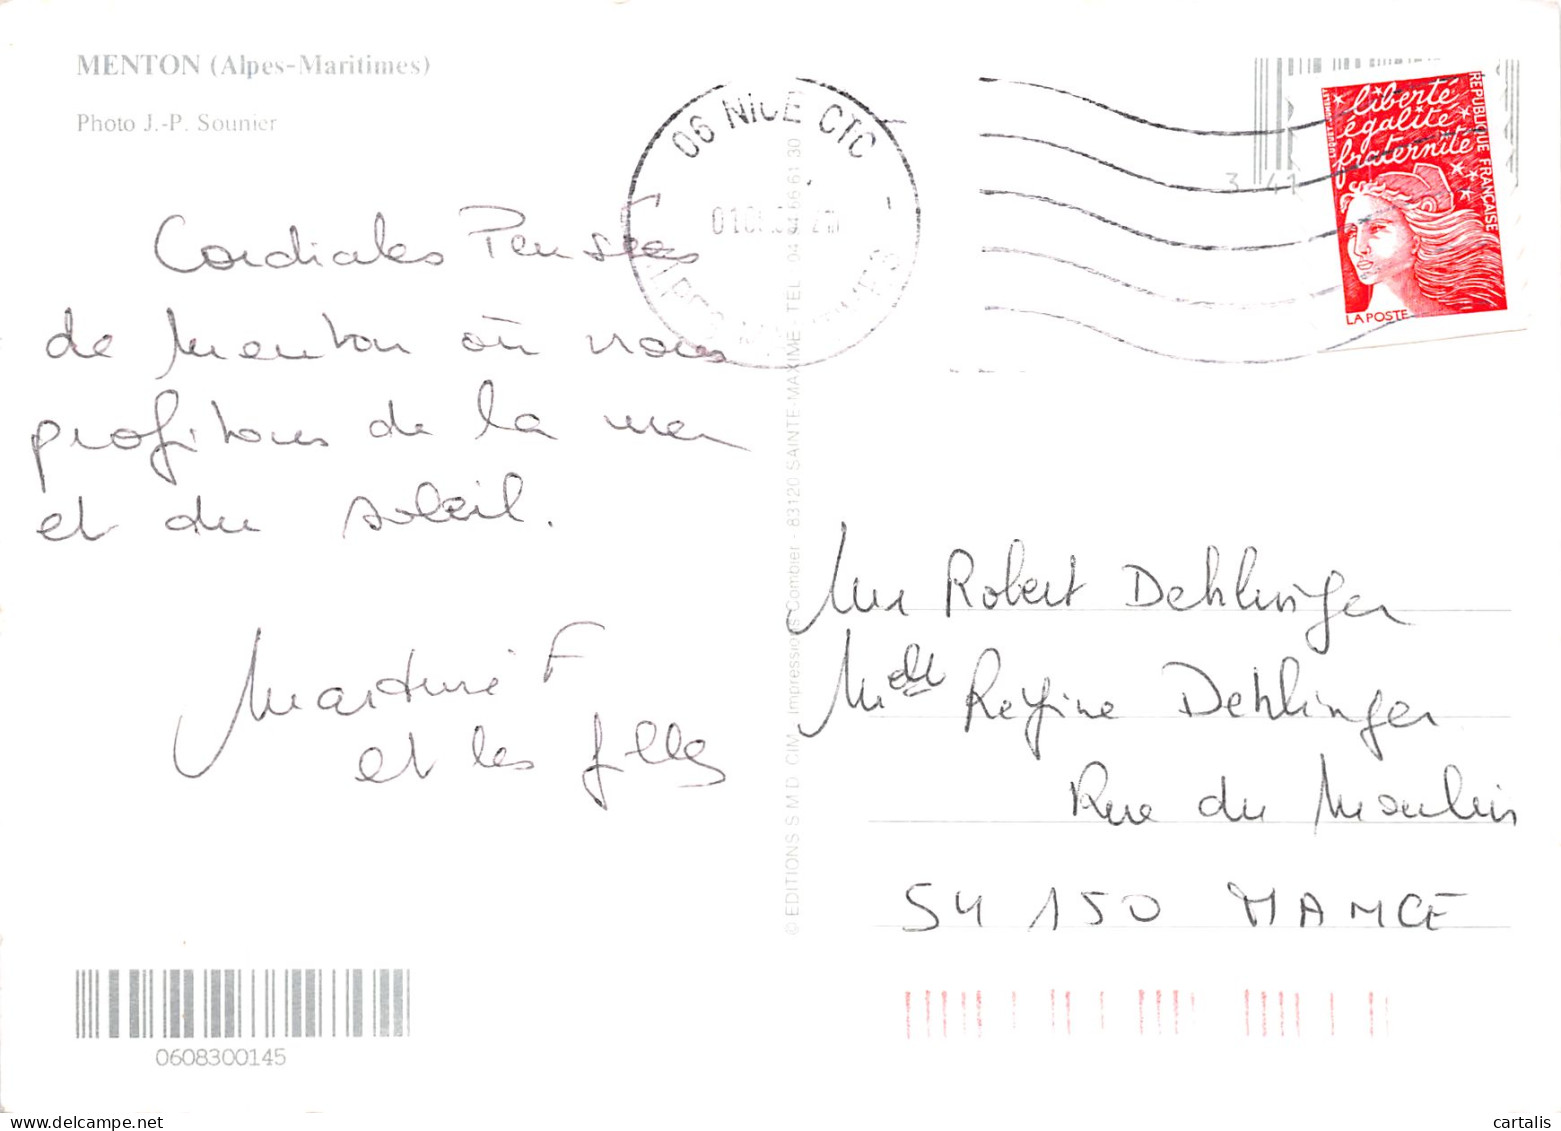 MENTON (Alpes-Maritimes)
Photo J.-P. Sounier
Cordiales Pensées
de Menton où nous
profitons de la mer
et du soleil.
Martine F
et les filles
0608300145
© EDITIONS S M D CIM - Impressions Combier - 83120 SAINTE-MAXIME - TEL 04 94 66 61 30
06 NICE CTC
ALPES MARITIMES
3 41
liberté
égalité
fraternité
RÉPUBLIQUE FRANÇAISE
LA POSTE
Mr Robert Dehlinger
Mdelle Régine Dehlinger
Rue du Moulin
54 150 MANCE
cartalis
www.delcampe.net